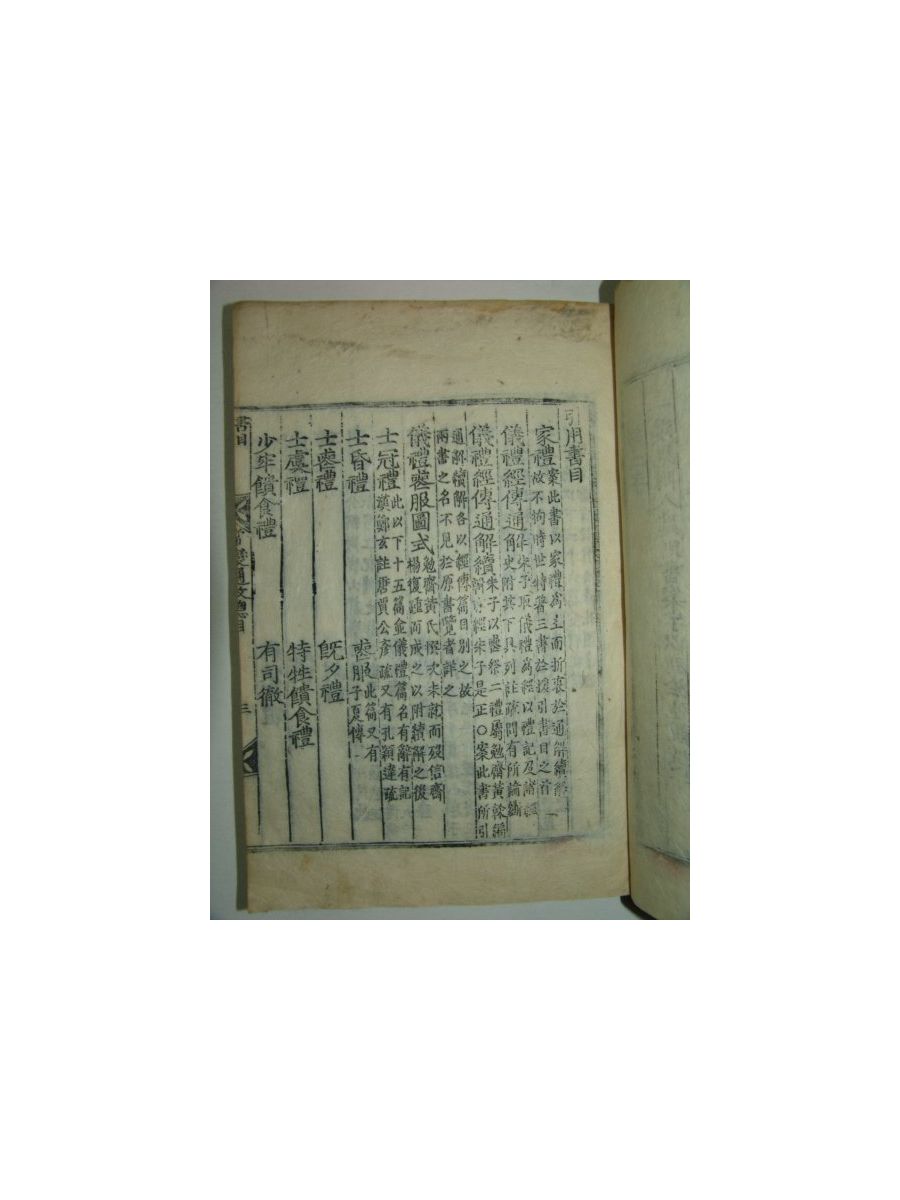 引用書目
家禮 案此書以家禮爲主而折衷於通解續解
故不拘時世特著三書於援引書目之首
儀禮經傳通解 朱子取儀禮爲經以禮記及諸經
史附其下具列註疏間有所論斷
儀禮經傳通解續 朱子以喪祭二禮屬勉齋黃榦編
輯 經朱子是正○案此書所引
通解續解各以經傳篇目別之故
兩書之名不見於原書覽者詳之
儀禮喪服圖式 勉齋黃氏撰次未就而歿信齋
楊復 而成之以附續解之後
士冠禮 此以下十五篇並儀禮篇名有辭有記
漢鄭玄註唐賈公彥疏又有孔穎達疏
士昏禮 喪服 此篇又有
子夏傳
士喪禮 旣夕禮
士虞禮 特牲饋食禮
少牢饋食禮 有司徹
書目
變通攷總目
三